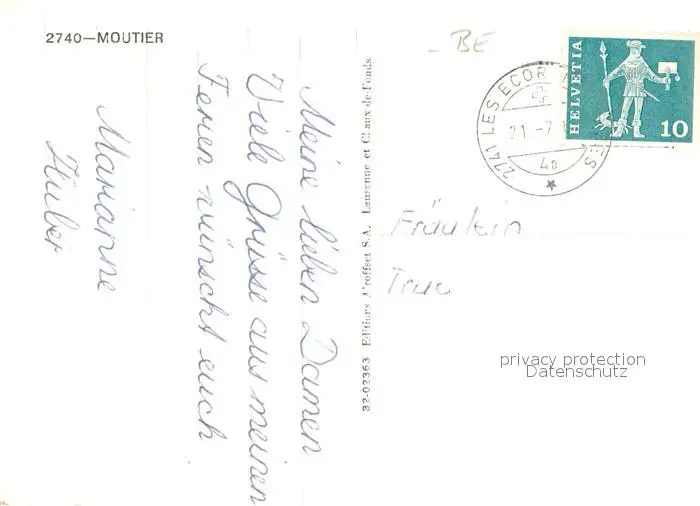 2740—MOUTIER
BE
HELVETIA
10
2741 LES ECOR
21.-7.
4a
Meine lieben Damen
Viele Grüsse aus meinen
Ferien wünscht euch
Marianne
Huber
32-02363 Editions Aroffset S.A. Lausanne et Chaux-de-Fonds
Fräulein
privacy protection
Datenschutz